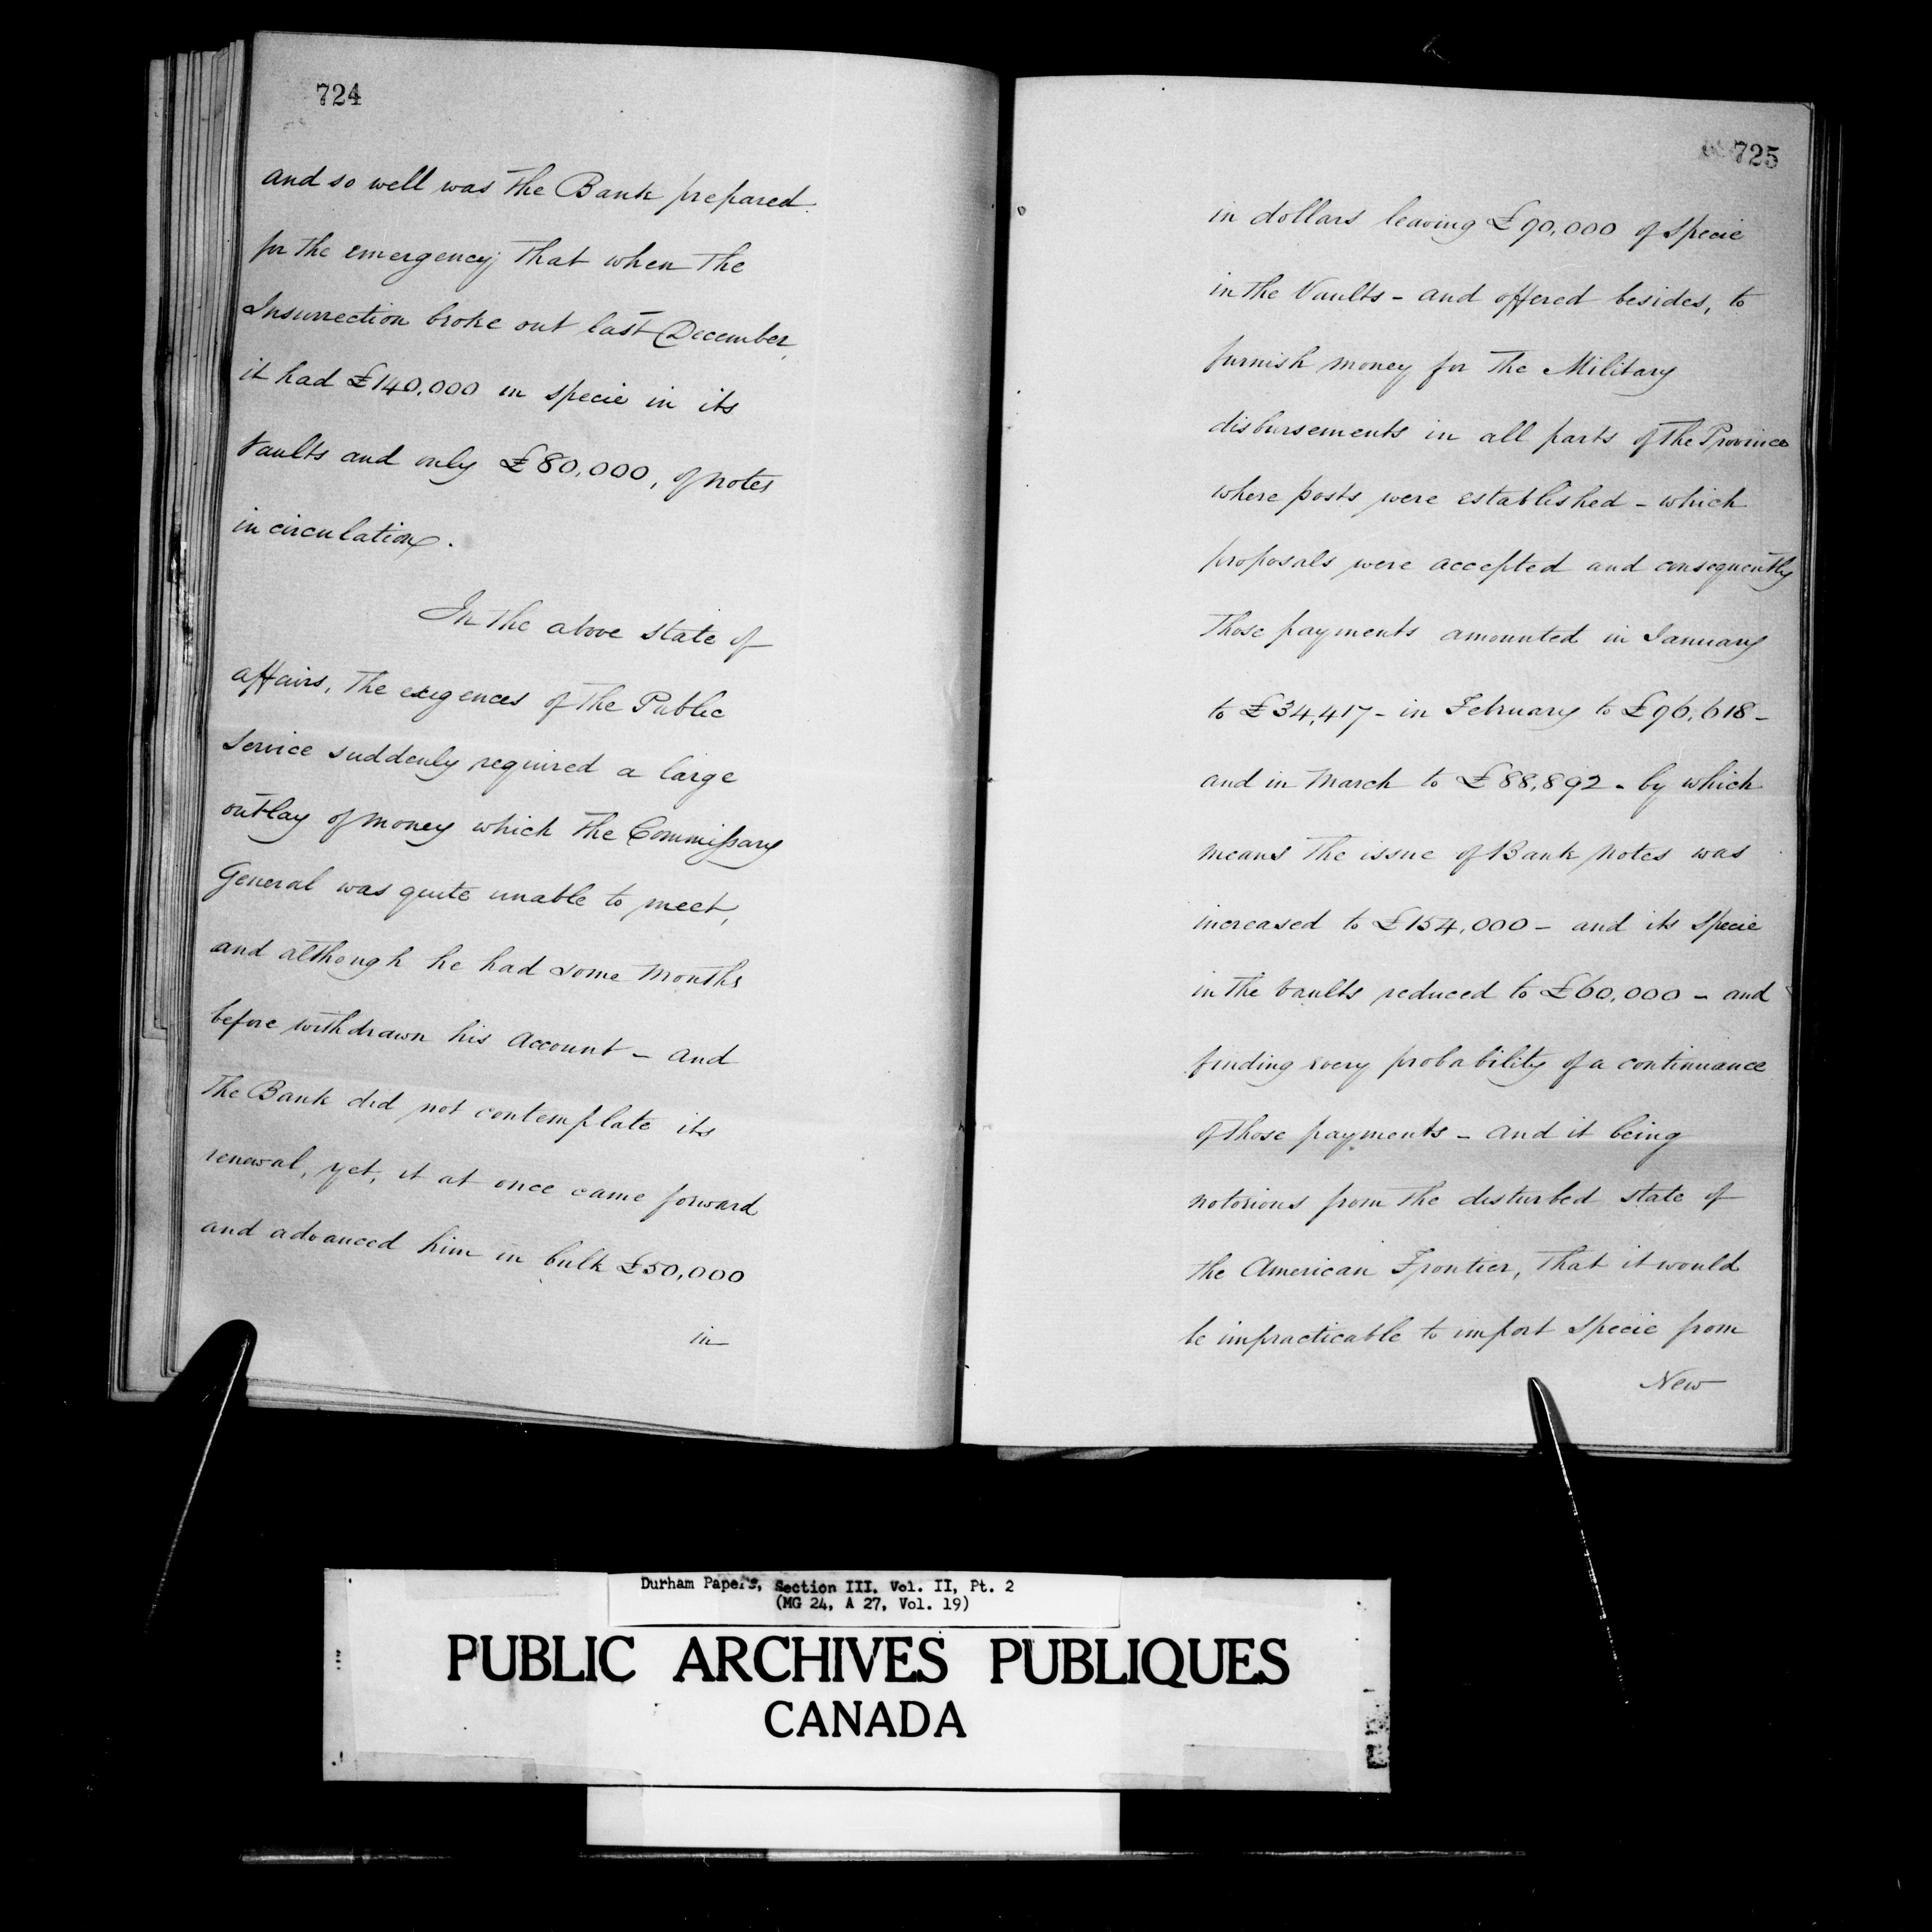 724
and so well was the Bank prepared
for the emergency that when the
Insurrection broke out last December,
it had £140,000 in specie in its
Vaults and only £80,000, of notes
in circulation.
In the above state of
affairs, the exigences of the Public
service suddenly required a large
outlay of money which the Commissary
General was quite unable to meet,
and although he had some months
before withdrawn his Account - and
the Bank did not contemplate its
renewal, yet, it at once came forward
and advanced him in bulk £50,000
in
725
in dollars leaving £90,000 of specie
in the Vaults - and offered besides, to
furnish money for the Military
disbursements in all parts of the Province
where posts were established - which
proposals were accepted and consequently
those payments amounted in January
to £34,417 - in February to £96,618 -
and in March to £88,892 - by which
means the issue of Bank notes was
increased to £154,000 - and its specie
in the vaults reduced to £60,000 - and
finding every probability of a continuance
of those payments - and it being
notorious from the disturbed state of
the American Frontier, that it would
be impracticable to import specie from
New
Durham Papers, Section III, Vol. II, Pt. 2
(MG 24, A 27, Vol. 19)
PUBLIC ARCHIVES PUBLIQUES
CANADA